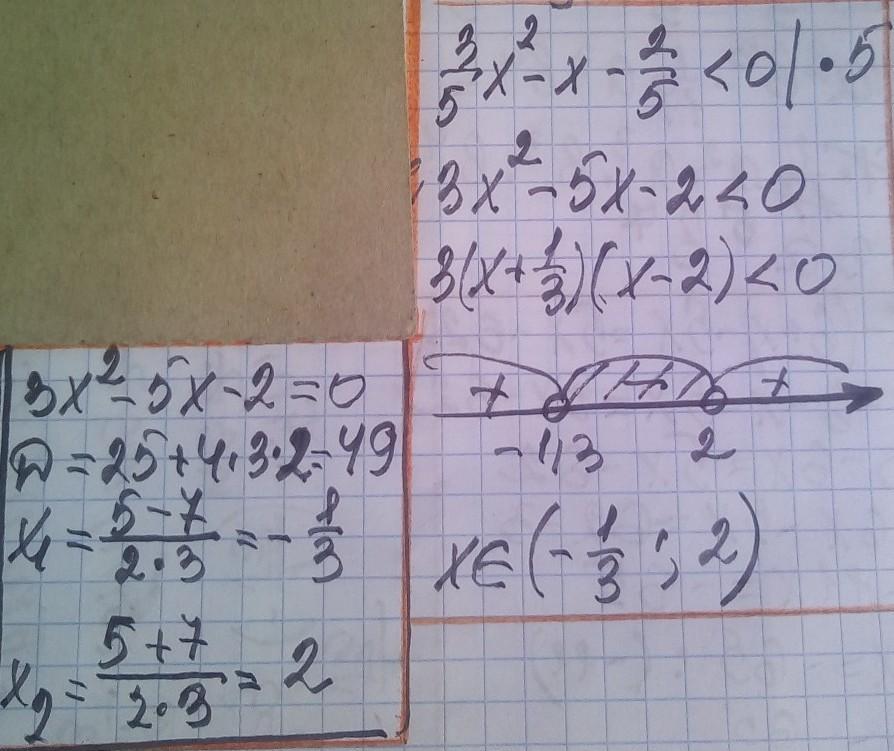 3/5 x² - x - 2/5 < 0 | · 5
3x² - 5x - 2 < 0
3(x + 1/3)(x - 2) < 0
+ - +
-1/3 2
x ∈ (-1/3 ; 2)
3x² - 5x - 2 = 0
D = 25 + 4·3·2 = 49
x₁ = (5 - 7)/(2·3) = -1/3
x₂ = (5 + 7)/(2·3) = 2